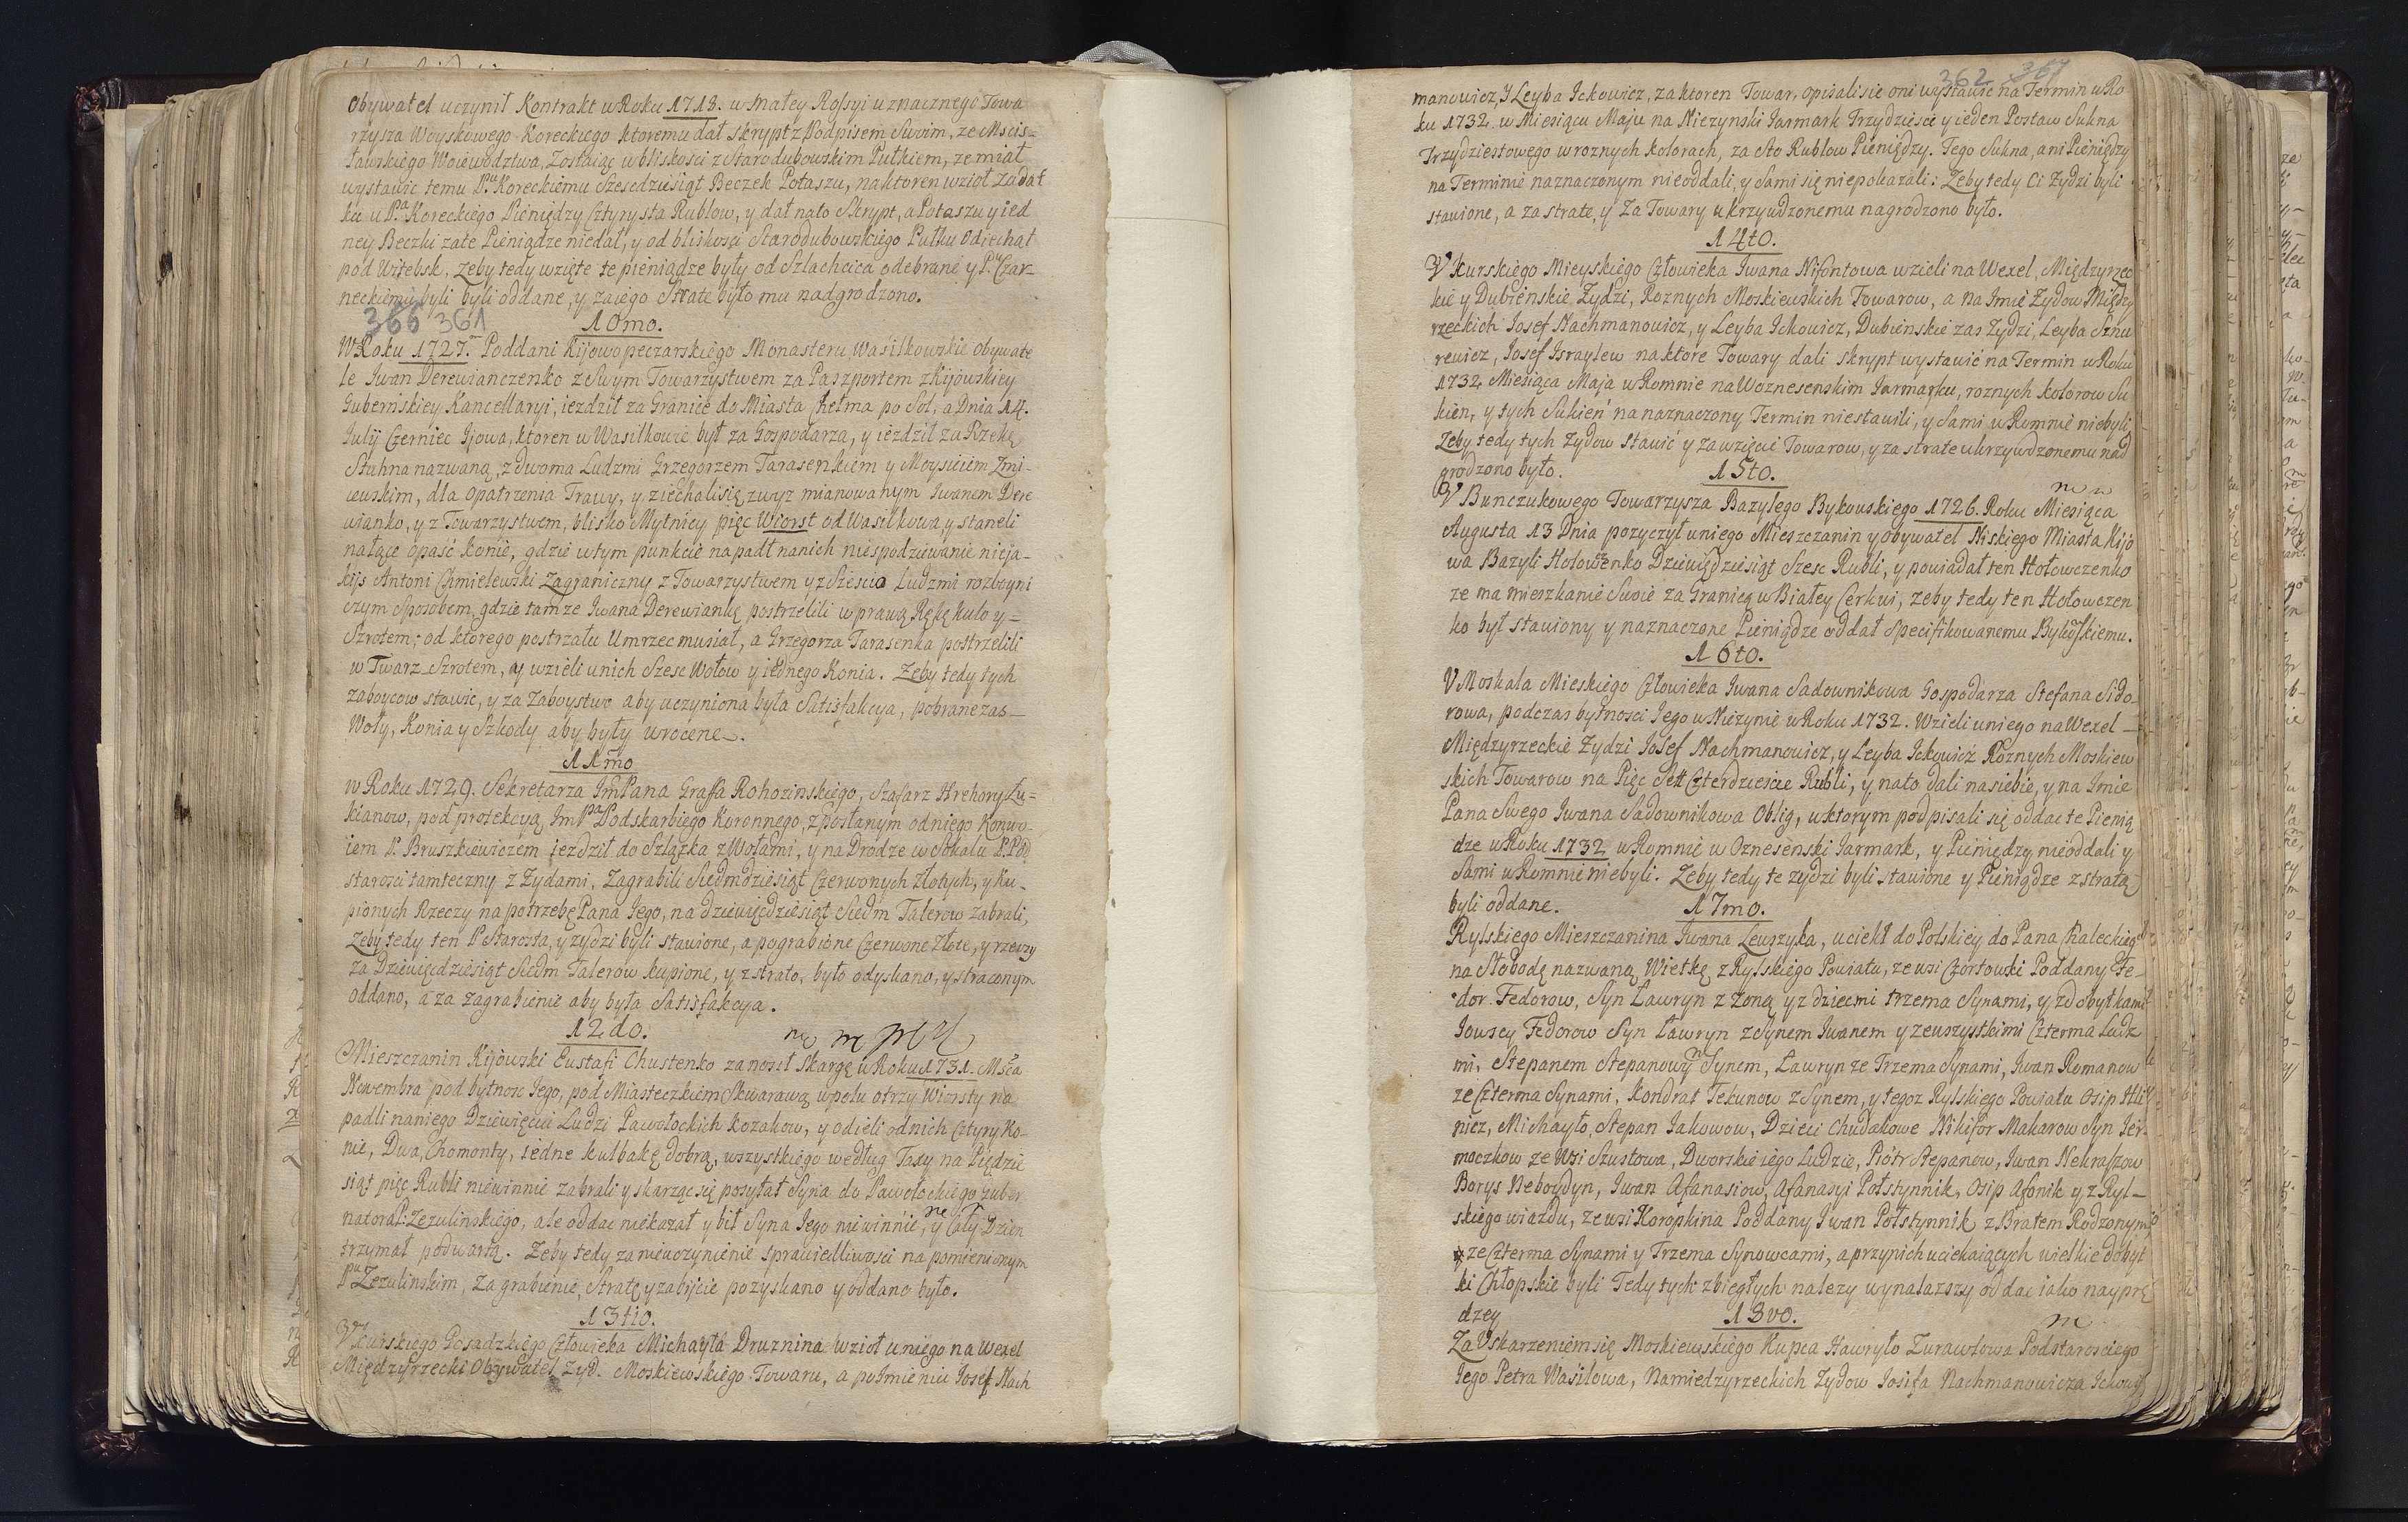 Obywatel uczynił Kontrakt w Roku 1718. w małey Rossyi u znacznego Towa
rzysza Woyskowego Koreckiego ktoremu dał skrypt z Podpisem Swoim, ze Mscis=
ławskiego Woiewodztwa, Zostaiąc w bliskosci z Starodubowskim Pułkiem, ze miał
wystawic temu P.u Koreckiemu Szescdziesiąt Beczek Potaszu, na ktoren wzioł Zadat
ku u P.a Koreckiego Pieniędzy Cztyrysta Rublow, y dał na to Skrypt, a Potaszu y ied
ney Beczki za te Pieniądze niedał, y od bliskosci Starodubowskiego Pułku Odiechał
pod Witebsk, Zeby tedy wzięte te pieniądze były od Szlachcica odebrane y P.u Czar=
neckiemu byli byli oddane, y za iego Strate było mu nadgrodzono.
366 361
10mo.
W Roku 1727. Poddani Kijowopeczarskiego Monasteru Wasilkowskie Obywate
le Iwan Derewianczenko z Swym Towarzystwem za Paszportem z Kijowskiey
Guberńskiey Kancellaryi, iezdził za Granice do Miasta Chełma po Sol, a Dnia 14.
Julij Czerniec Ijowa, ktoren w Wasilkowie był za Gospodarza, y iezdził za Rzekę
Stuhna nazwaną, z dwoma Ludzmi Grzegorzem Tarasenkiem y Moysieiem Zmi-
iewskim, dla Opatrzenia Trawy, y ziechalisię z wyz mianowanym Iwanem Dere
wianko, y z Towarzystwem, blisko Mytnicy pięc Wiorst od Wasilkowa y staneli
na łące opaść Konie, gdzie w tym punkcie napadł na nich niespodziewanie nieja-
kijs Antoni Chmielewski Zagraniczny z Towarzystwem y z Szescia Ludzmi rozboyni
czym Sposobem, gdzie tamze Iwana Derewiankę postrzelili w prawą Rękę kulo y=
Szrotem; od ktorego postrzału Umrzec musiał, a Grzegorza Tarasenka postrzelili
w Twarz Szrotem, y wzieli u nich Szesc Wołow y iednego Konia. Zeby tedy tych
zaboycow stawic, y za Zaboystwo aby uczyniona była Satisfakcya, pobrane zas—
Woły, Konia y Szkody aby były wrocene.
11mo
w Roku 1729. Sekretarza ImPana Graffa Rohozinskiego, Szafarz Hrehory Łu=
kianow, pod protekcyą ImPa Podskarbiego Koronnego, z posłanym od niego Konwo-
iem P. Bruszkiewiczem iezdził do Szlązka z Wołami, y na Drodze w Sokalu P. Pod
starosci tamteczny z Zydami, Zagrabili Siedmdziesiąt Czerwonych Złotych, y Ku-
pionych Rzeczy na potrzebę Pana Jego, na dziewiędziesiąt Siedm Talerow zabrali,
Zeby tedy ten P. Starosta, y zydzi byli stawione, a pograbione Czerwone Złote, y rzeczy
za Dziewiędziesiąt Siedm Talerow kupione, y z strato, było odyskano, y straconym
Oddano, a za zagrabienie aby była Satisfakcya.
12do.
Mieszczanin Kijowski Eustafi Chustenko zanosił Skargę w Roku 1731. Msca
Nowembra pod bytnosc Jego, pod Miasteczkiem Skwarawą w polu o trzy Wiorsty na
padli na niego Dziewięciu Ludzi Pawołockich kozakow, y odieli od nich Cztyry Ko-
nie, Dwa Chomonty, iedne kulbakę dobrą, wszystkiego według Taxy na Piędzie
siąt pięc Rubli niewinnie zabrali y skarząc się posyłał Syna do Pawołockiego guber
natora P. Zezulinskiego, ale oddac niekazał y bił Syna Jego niewinnie, y Cały Dzien
trzymał pod wartą. Zeby tedy za nieuczynienie sprawiedliwosci na pomienionym
Pu Zezulinskim, Za grabienie, Stratę y zabijcie pozyskano y oddano było.
13tio.
V Kurskiego Posadzkiego Człowieka Michayła Druznina wzioł u niego na Wexel
Międzyrzecki Obywatel Zyd. Moskiewskiego Towaru, a po Imieniu Josef Nach
362 367
manowicz, y Leyba Ickowicz, za ktoren Towar, opisalisie oni wystawic na Termin w Ro
ku 1732. w Miesiącu Maju na Niezynski Jarmark Trzydziescie y ieden Postaw Sukna
Trzydziestowego w roznych kolorach, za Sto Rublow Pieniędzy. Tego Sukna, ani Pieniędzy
na Terminie naznaczonym nieoddali, y Sami się niepokazali: Zeby tedy Ci Zydzi byli
stawione, a za strate, y Za Towary ukrzywdzonemu nagrodzono było.
14to.
V Kurskiego Mieyskiego Człowieka Iwana Nifontowa wzieli na Wexel, Międzyrzec
kie y Dubieńskie Zydzi, Roznych Moskiewskich Towarow, a na Imie Zydow Między
rzeckich Josef Nachmanowicz, y Leyba Ickowicz, Dubienskie zas Zydzi, Leyba Sznu
rewicz, Josef Israylew na ktore Towary dali skrypt wystawić na Termin w Roku
1732 Miesiąca Maja w Romnie na Woznesenskim Jarmarku, roznych kolorow Su
kien, y tych Sukień na naznaczony Termin niestawili, y Sami w Romnie niebyli
Zeby tedy tych Zydow stawić y za wzięcie Towarow, y za strate ukrzywdzonemu nad
grodzono było.
15to.
V Bunczukowego Towarzysza Bazylego Bykowskiego 1726. Roku Miesiąca
Augusta 13 Dnia pozyczył u niego Mieszczanin y obywatel Niskiego Miasta Kijo
wa Bazyli Hołowczenko Dziewiędziesiąt Szesc Rubli, y powiadał ten Hołowczenko
ze ma mieszkanie Swoie za Granicą w Białey Cerkwi, zeby tedy ten Hołowczen
ko był stawiony y naznaczone Pieniądze oddał Specifikowanemu Bykowskiemu.
16to.
V Moskala Mieskiego Człowieka Iwana Sadownikowa Gospodarza Stefana Sido-
rowa, podczas bytnosci Jego w Niezynie w Roku 1732. Wzieli u niego na Wexel—
Międzyrzeckie Zydzi Josef Nachmanowicz, y Leyba Ickowicz Roznych Moskiew
skich Towarow na Pięc Set Czterdziescie Rubli, y na to dali na siebie, y na Imie
Pana Swego Iwana Sadownikowa Oblig, w ktorym podpisali się oddac te Pienią
dze w Roku 1732 w Romnie w Oznesenski Jarmark, y Pieniędzy nieoddali y
Sami w Romnie niebyli. Zeby tedy te zydzi byli stawione y Pieniądze z stratą
byli oddane.
17mo.
Rylskiego Mieszczanina Iwana Lewszyka, uciekł do Polskiey do Pana Chaleckiego
na Słobodę nazwaną Wietkę z Rylskiego Powiatu, ze wsi Czortowki Poddany Fe-
dor Fedorow, Syn Ławryn z Zoną y z dziecmi trzema Synami, y z dobytkami
Jowsey Fedorow Syn Ławryn z Synem Iwanem y ze wszystkimi Czterma Ludz
mi, Stepanem Stepanowym Synem, Ławryn ze Trzema Synami, Iwan Romanow
ze Czterma Synami, Kondrat Tekunow z Synem, y tegoz Rylskiego Powiatu Osip Hli
nicz, Michayło, Stepan Jakowow, Dzieci Chudakowe Nikifor Makarow Syn Jer-
moczkow ze Wsi Szustowa, Dworskie iego Ludzie, Piotr Stepanow, Iwan Nekraszow
Borys Neboydyn, Iwan Afanasiow, Afanasyi Połstynnik, Osip Afonik y z Ryl—
skiego wiazdu, ze wsi Koropkina Poddany Iwan Połstynnik z Bratem Rodzonym
ze Czterma Synami y Trzema Synowcami, a przy nich uciekaiących wielkie dobyt
ki Chłopskie byli Tedy tych zbiegłych nalezy wynalazszy oddac iako nayprę
dzey
18vo.
Za Uskarzeniem się Moskiewskiego Kupca Hawryło Zurawlowa Podstarosciego
Jego Petra Wasilowa, Na miedzyrzeckich Zydow Josifa Nachmanowicza Ickowi